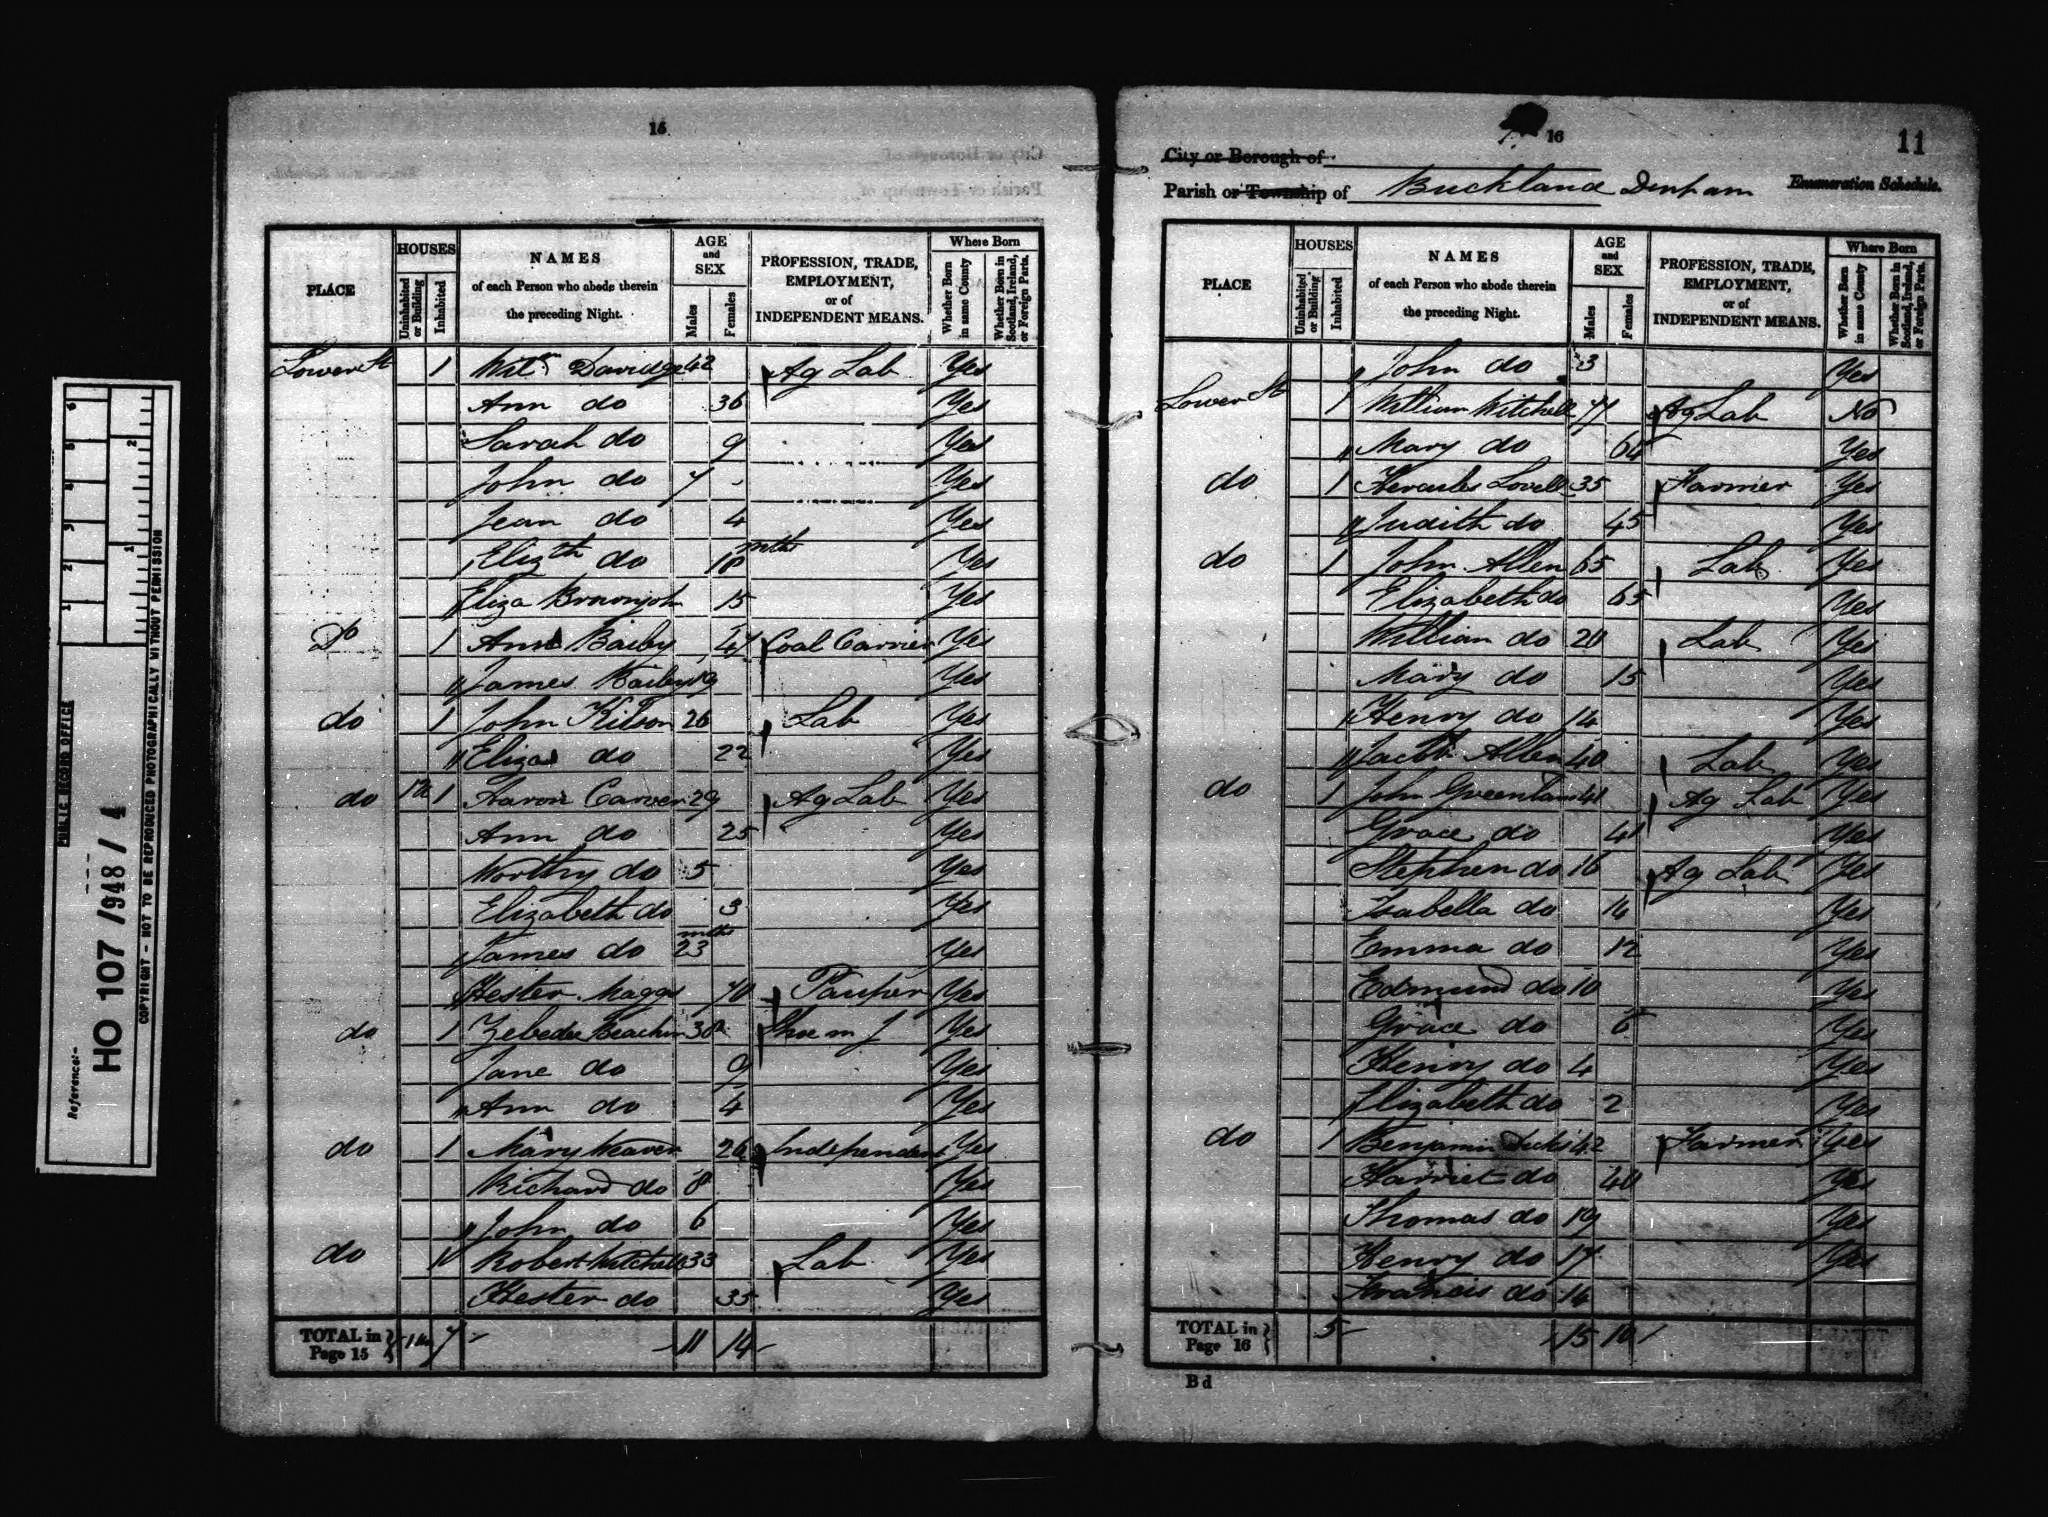 15
PLACE HOUSES Uninhabited or Building Inhabited NAMES of each Person who abode therein the preceding Night. AGE and SEX Males Females PROFESSION, TRADE, EMPLOYMENT, or of INDEPENDENT MEANS. Where Born Whether Born in same County Whether Born in Scotland, Ireland, or Foreign Parts.
Lower St 1 Wilm Davidge 42 Ag Lab Yes
Ann do 36 Yes
Sarah do 9 Yes
John do 7 Yes
Jean do 4 Yes
Elizth do 18 mths Yes
Eliza Brownjohn 15 Yes
Do 1 Ann Baily 47 Coal Carrier Yes
James Baily 19 Yes
do 1 John Kilson 26 Lab Yes
Eliza do 22 Yes
do 1 Aaron Carver 29 Ag Lab Yes
Ann do 25 Yes
Worthy do 5 Yes
Elizabeth do 3 Yes
James do 23 mths Yes
Hester Maggs 70 Pauper Yes
do 1 Zebedee Beachim 30 Shoe m J Yes
Jane do 9 Yes
Ann do 4 Yes
do 1 Mary Weaver 26 Independent Yes
Richard do 8 Yes
John do 6 Yes
do 1 Robert Witchell 33 Lab Yes
Hester do 35 Yes
TOTAL in Page 15 7 11 14
16
11
City or Borough of
Parish or Township of Buckland Denham Enumeration Schedule.
PLACE HOUSES Uninhabited or Building Inhabited NAMES of each Person who abode therein the preceding Night. AGE and SEX Males Females PROFESSION, TRADE, EMPLOYMENT, or of INDEPENDENT MEANS. Where Born Whether Born in same County Whether Born in Scotland, Ireland, or Foreign Parts.
John do 3 Yes
Lower St 1 William Witchell 77 Ag Lab No
Mary do 64 Yes
do 1 Hercules Lovell 35 Farmer Yes
Judith do 45 Yes
do 1 John Allen 65 Lab Yes
Elizabeth do 65 Yes
William do 20 Lab Yes
Mary do 15 Yes
Henry do 14 Yes
Jacob Allen 40 Lab Yes
do 1 John Greenland 41 Ag Lab Yes
Grace do 41 Yes
Stephen do 16 Ag Lab Yes
Isabella do 14 Yes
Emma do 12 Yes
Edmund do 10 Yes
Grace do 6 Yes
Henry do 4 Yes
Elizabeth do 2 Yes
do 1 Benjamin 42 Farmer Yes
Harriet do 40 Yes
Thomas do 19 Yes
Henry do 17 Yes
Francis do 14
TOTAL in Page 16 5 15 10
B d
PUBLIC RECORD OFFICE
Reference:-
HO 107 / 948 / 4
COPYRIGHT - NOT TO BE REPRODUCED PHOTOGRAPHICALLY WITHOUT PERMISSION